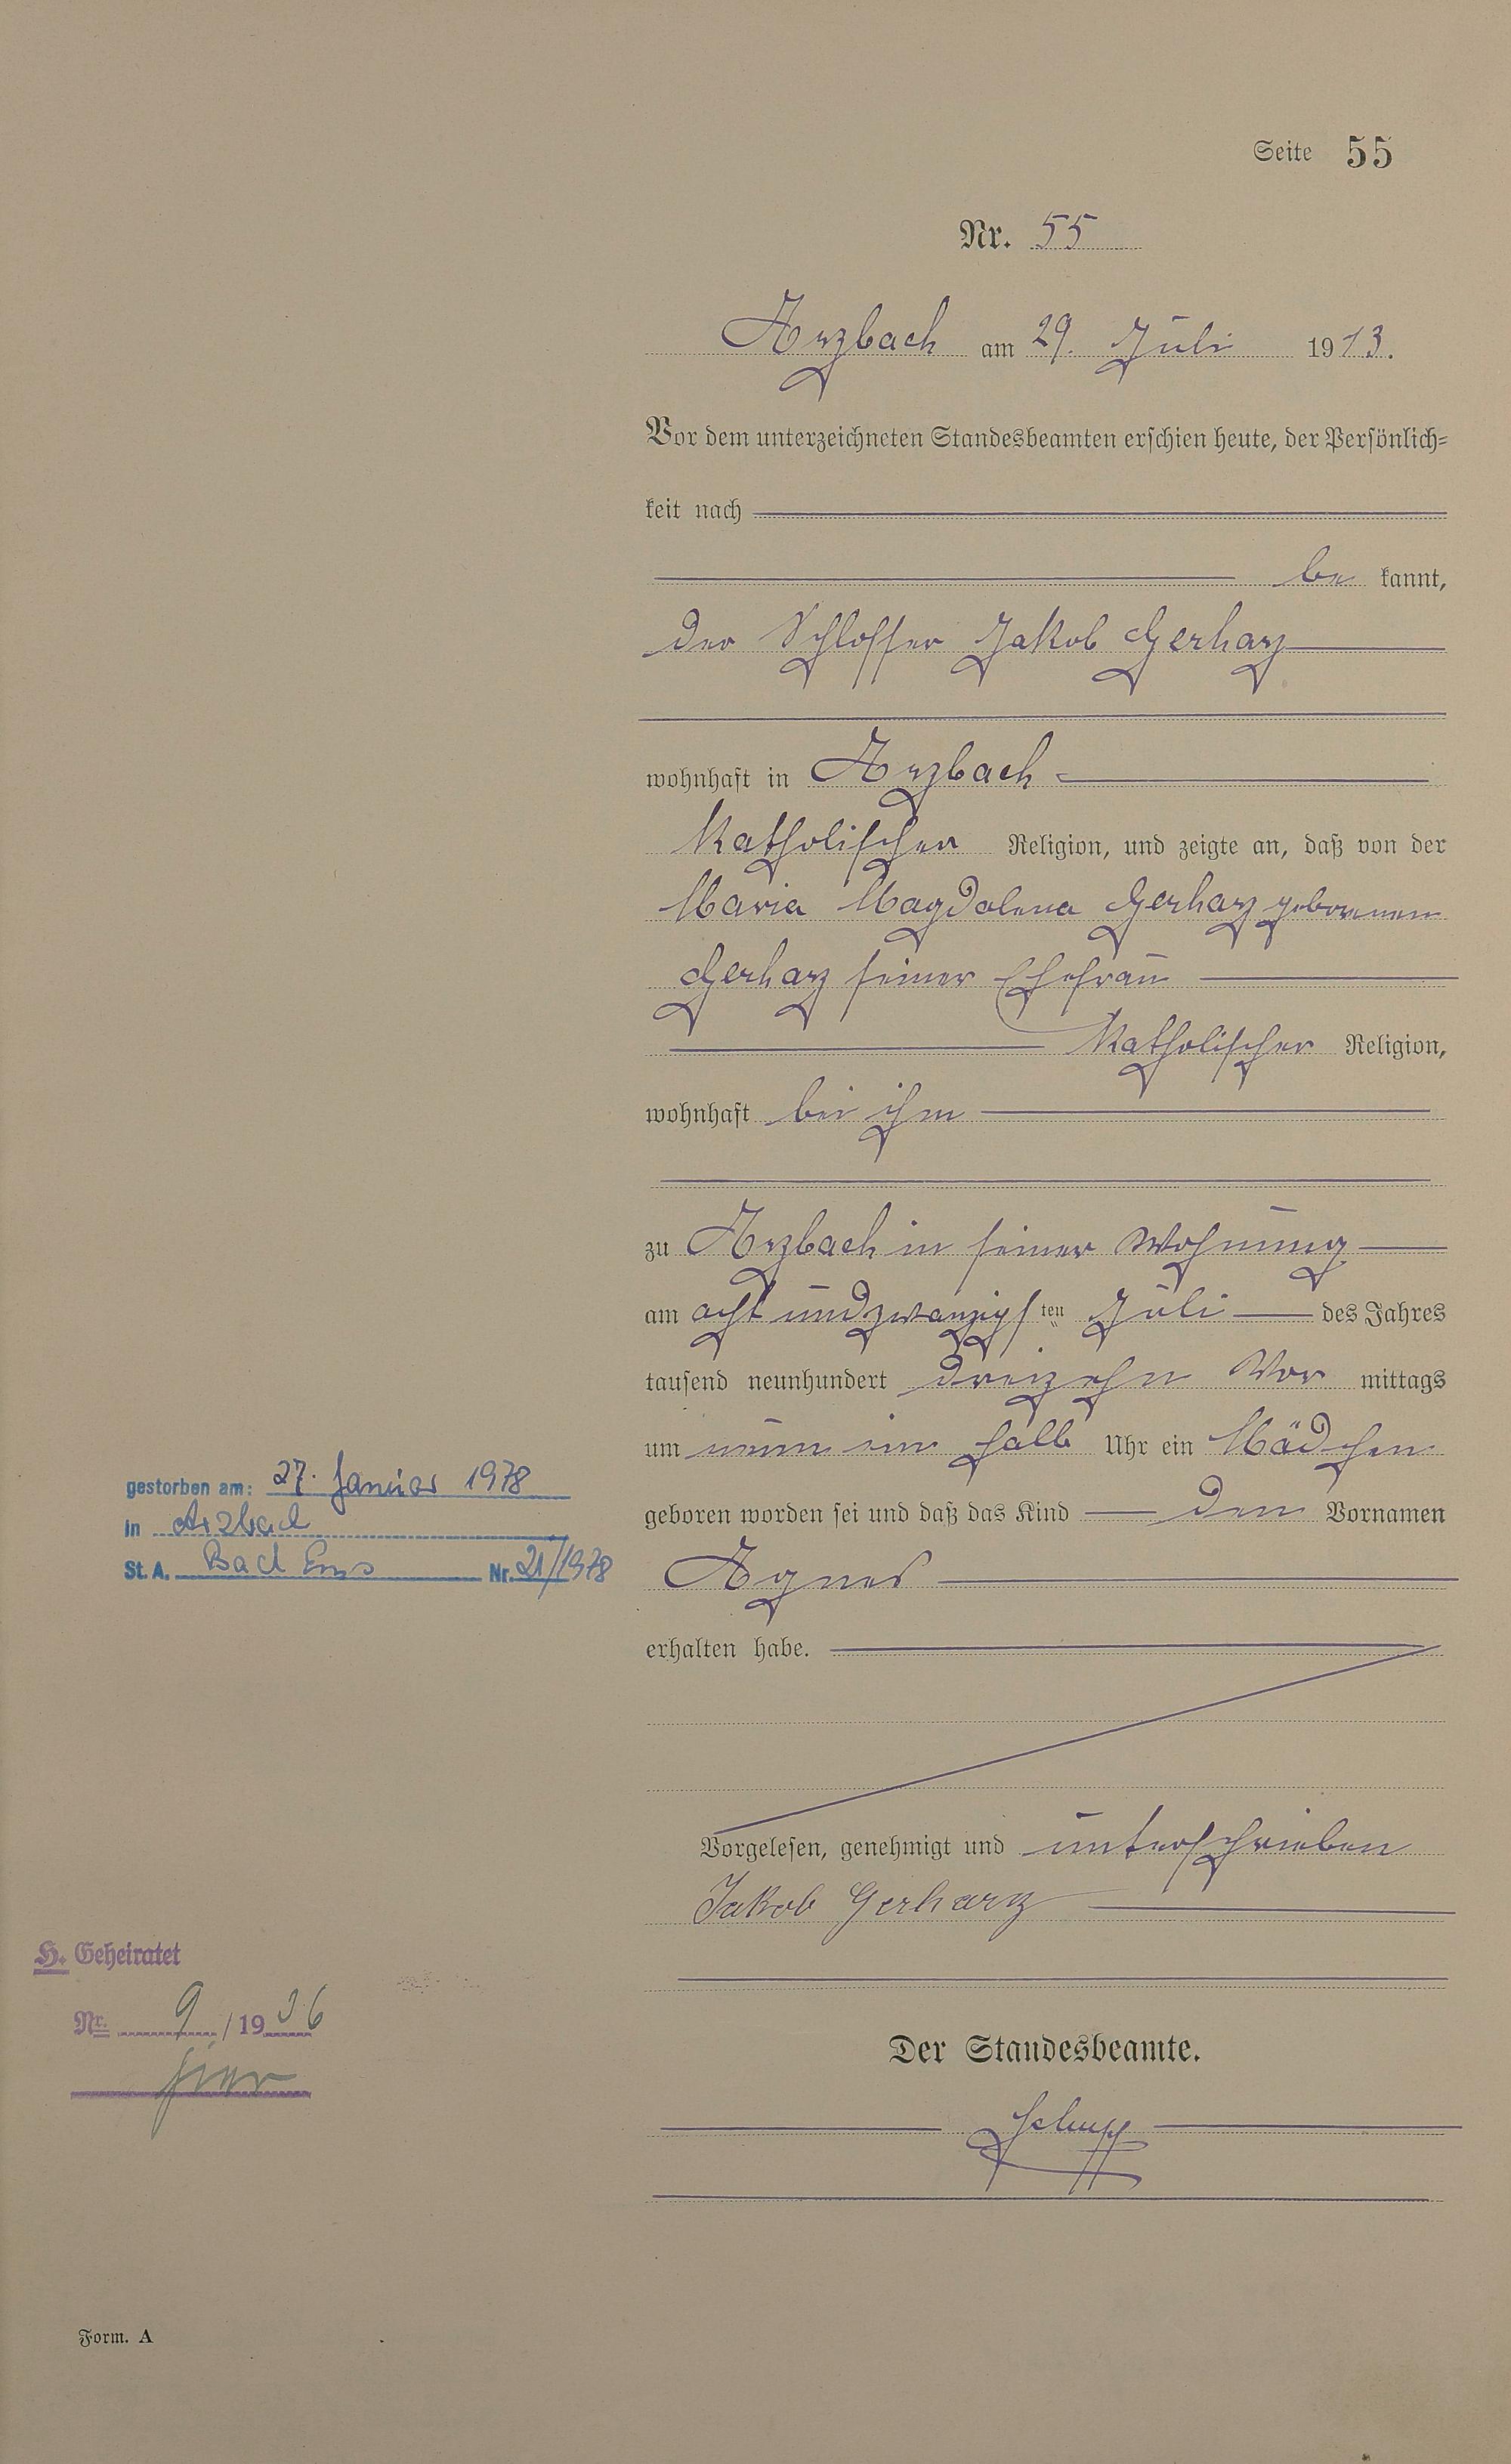 Seite 55
Nr. 55
Arzbach am 29. Juli 1913.
Vor dem unterzeichneten Standesbeamten erschien heute, der Persönlich=
keit nach
be kannt,
der Schlosser Jakob Gerharz
wohnhaft in Arzbach
katholischer Religion, und zeigte an, daß von der
Maria Magdalena Gerharz geborenen
Gerharz seiner Ehefrau
katholischer Religion,
wohnhaft bei ihm
zu Arzbach in seiner Wohnung
am acht und zwanzigsten Juli des Jahres
tausend neunhundert dreizehn Vor mittags
um neun ein halb Uhr ein Mädchen
geboren worden sei und daß das Kind den Vornamen
Agnes
erhalten habe.
Vorgelesen, genehmigt und unterschrieben
Jakob Gerharz
Der Standesbeamte.
gestorben am: 27. Januar 1978
in Arzbach
St. A. Bad Ems Nr. 21/1978
H. Geheiratet
Nr. 9 / 1936
hier
Form. A